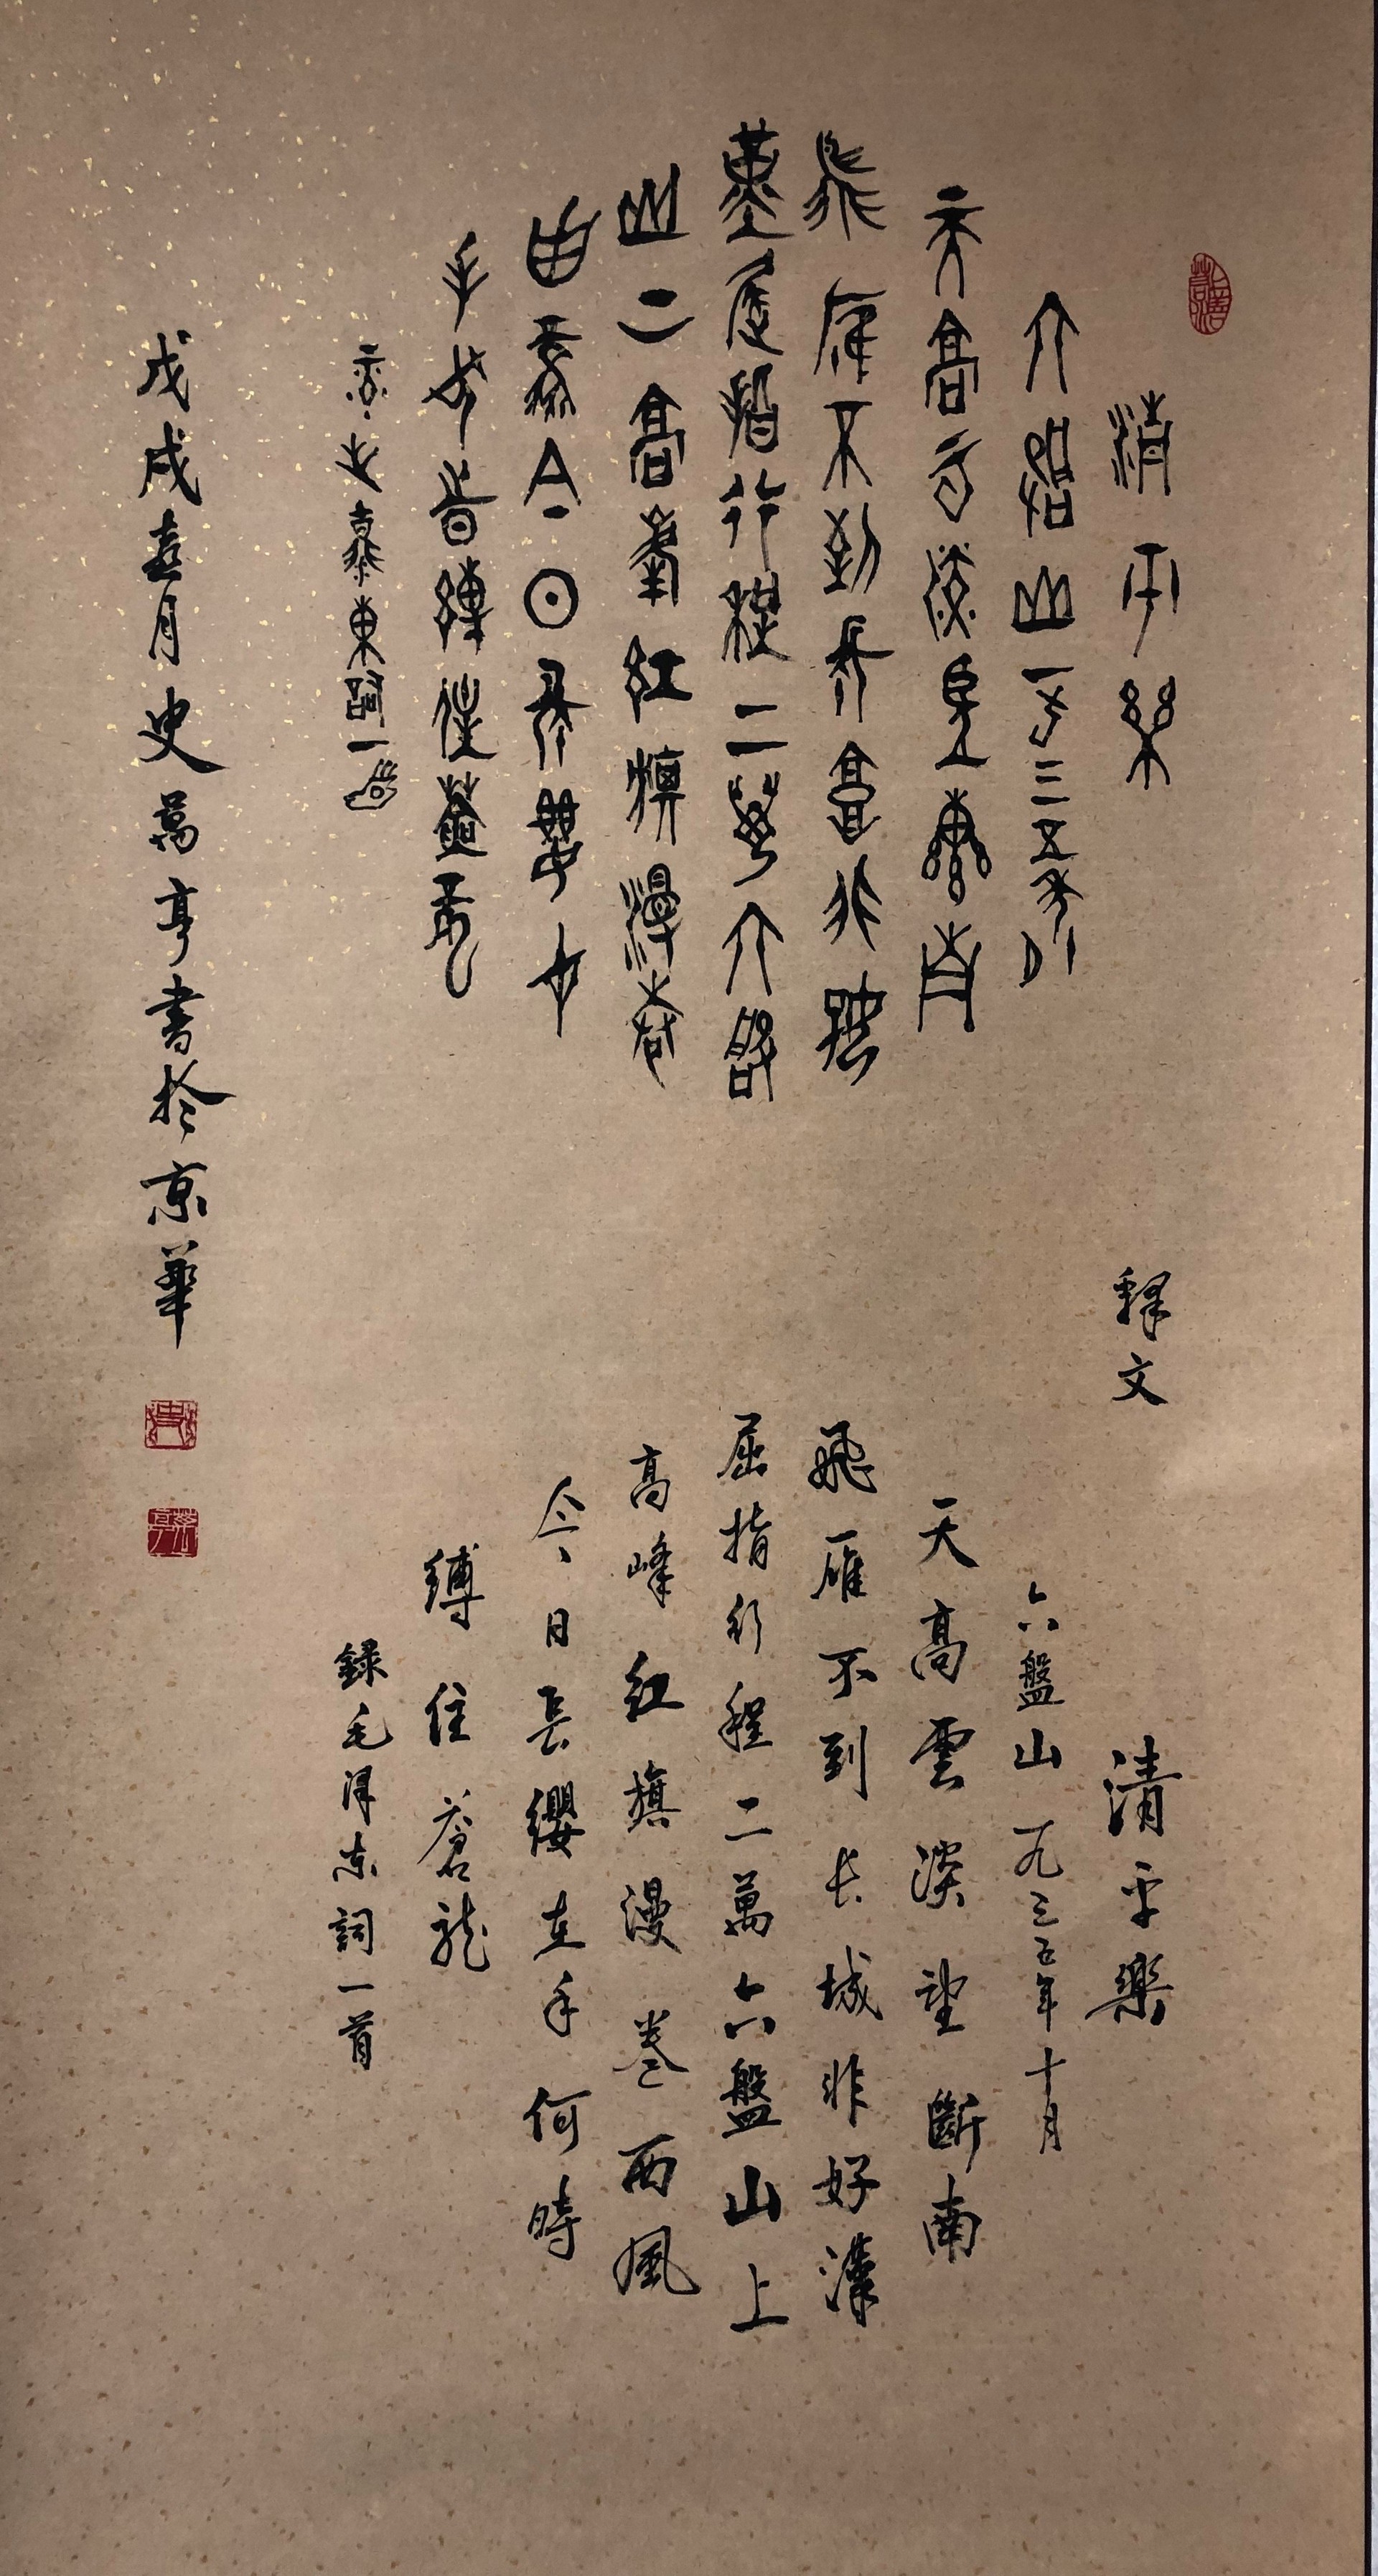 清平樂
六盤山一九三五年十月
天高雲淡望斷南
飛雁不到長城非好
漢屈指行程二萬六盤
山上高峰紅旗漫卷
西風今日長纓在
手何時縛住蒼龍
录毛澤東詞一首
釋文
清平樂
六盤山一九三五年十月
天高雲淡望斷南
飛雁不到长城非好漢
屈指行程二萬六盤山上
高峰紅旗漫卷西風
今日長纓在手何時
縛住蒼龍
録毛澤东詞一首
戊戌月史萬亨書於京華